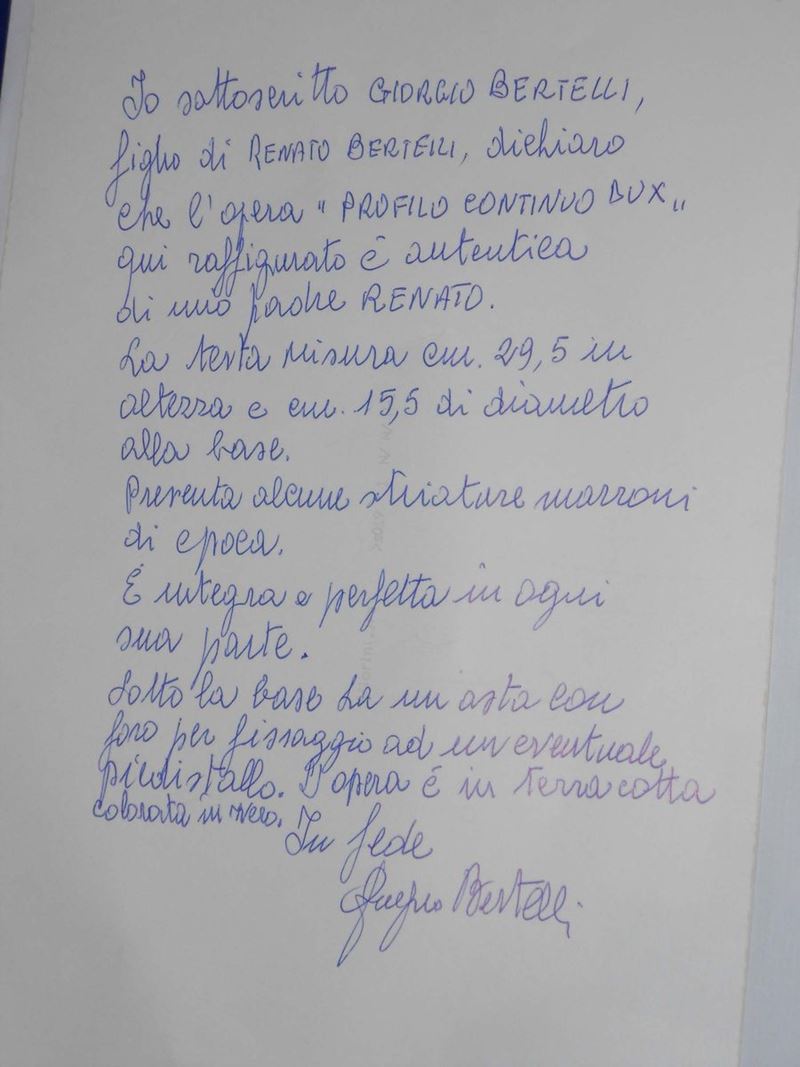 Io sottoscritto GIORGIO BERTELLI,
figlio di RENATO BERTELLI, dichiaro
che l'opera " PROFILO CONTINUO DUX "
qui raffigurato è autentica
di mio padre RENATO.
La testa misura cm. 29,5 in
altezza e cm. 15,5 di diametro
alla base.
Presenta alcune striature marroni
di epoca.
È integra e perfetta in ogni
sua parte.
Sotto la base ha un asta con
foro per fissaggio ad un eventuale
piedistallo. L'opera è in terracotta
colorata in nero.
In fede
Giorgio Bertelli